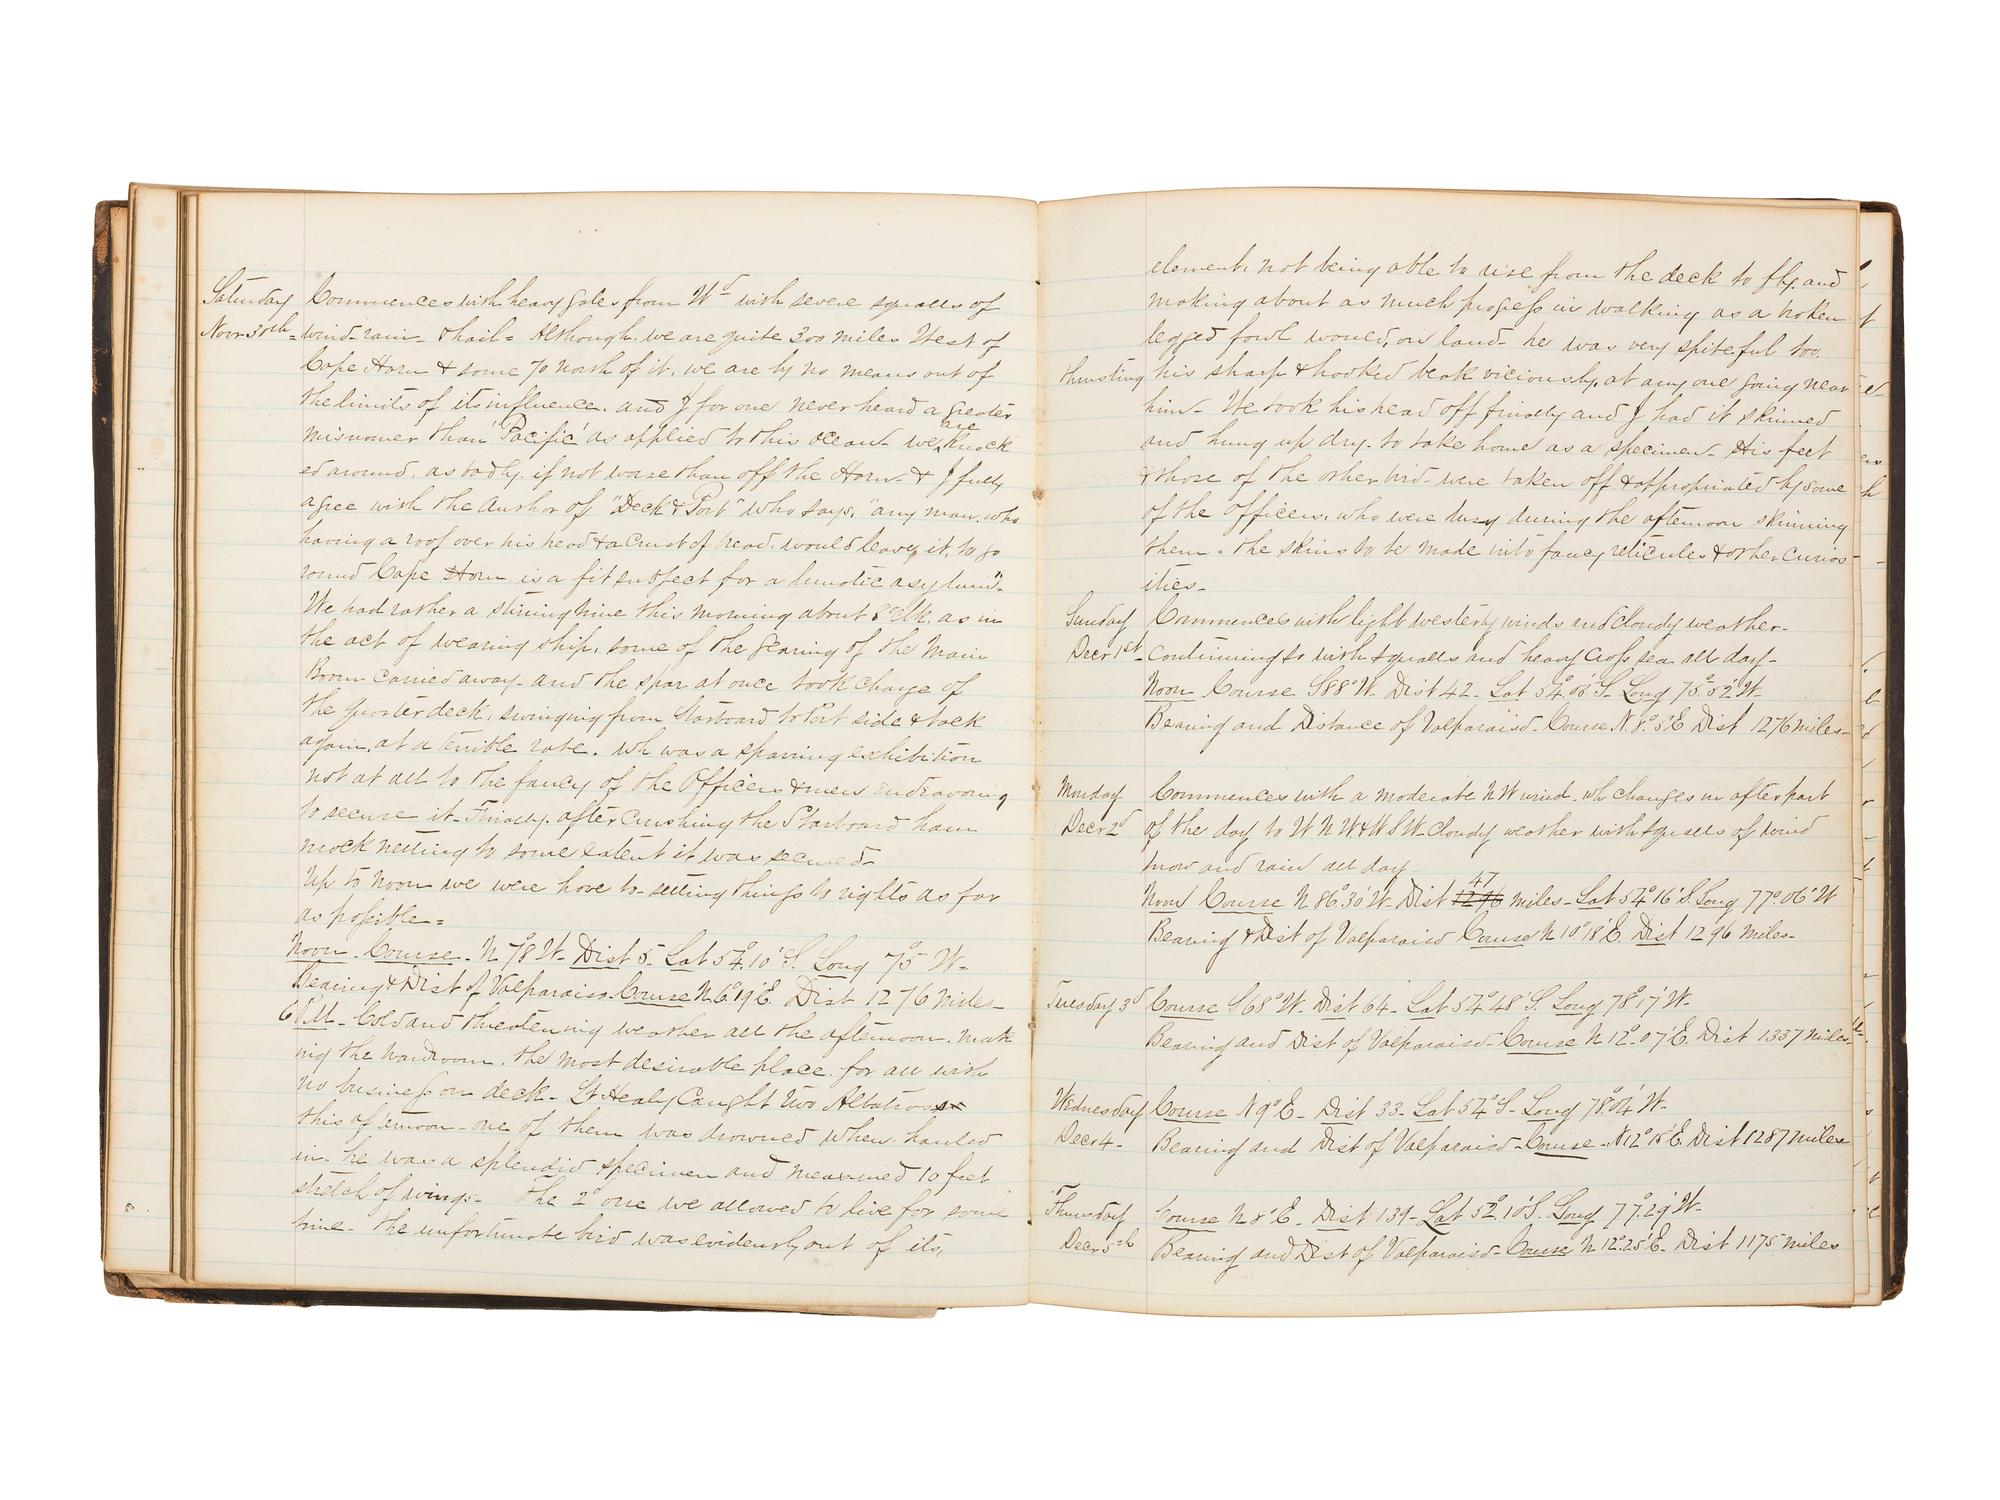 Saturday Commences with heavy gales from Wd with severe squalls of
Novr 30th = wind - rain - & hail = Although we are quite 300 miles West of
Cape Horn & some 70 north of it, we are by no means out of
the limits of its influence. and I for one never heard a greater
misnomer than 'Pacific' as applied to this Ocean - we are knock
ed around, as badly, if not worse than off the Horn - & I fully
agree with the Author of "Deck & Port" who says, "any man, who
having a roof over his head & a crust of bread, would leave it, to go
round Cape Horn is a fit subject for a lunatic asylum" -
We had rather a stirring time this morning about 8 oClk. as in
the act of wearing ship, some of the gearing of the Main
Boom carried away - and the spar at once took charge of
the quarter deck, swinging from Starboard to Port side & back
again, at a terrible rate. wh was a sparring exhibition
not at all to the fancy of the Officers & men endeavoring
to secure it - Finally, after crushing the Starboard ham
mock netting to some extent it was secured -
Up to Noon we were hove to - setting things to rights as far
as possible =
Noon. Course - N 78 W - Dist 5 - Lat 54°.10' S. Long 75° W -
Bearing & Dist of Valparaiso. Course N 6°.19' E. Dist 1276 Miles -
6 P.M - Cold and threatening weather all the afternoon. mak
ing the wardroom. the most desirable place. for all with
no business on deck - Lt Healy Caught two Albatross
this afternoon - one of them was drowned when hauled
in. he was a splendid specimen and measured 10 feet
stretch of wings - The 2d one we allowed to live for some
time - the unfortunate bird was evidently out of its,
element, not being able to rise from the deck to fly, and
making about as much progress in walking as a broken
legged fowl would, on land - he was very spiteful too.
thrusting his sharp & hooked beak viciously, at any one going near
him - We took his head off finally and I had it skinned
and hung up dry. to take home as a specimen - His feet
& those of the other bird - were taken off & appropriated by some
of the Officers, who were busy during the afternoon skinning
them - the skins to be made into fancy reticules & other curios
ities -
Sunday Commences with light westerly winds and cloudy weather -
Decr 1st - continuing so with squalls and heavy cross sea all day -
Noon Course S 88° W. Dist 42 - Lat 54°.06' S. Long 75°.52' W.
Bearing and Distance of Valparaiso - Course N. 8°. 5' E Dist 1276 miles -
Monday Commences with a moderate NW wind. wh changes in after part
Decr 2d of the day to W N W & W S W - Cloudy weather with squalls of wind
snow and rain all day
Noon Course N 86°.30' W - Dist 1296 47 miles - Lat 54°16' S. Long 77°.06' W
Bearing & Dist of Valparaiso Course N 10°18' E. Dist 1296 Miles -
Tuesday 3d Course S 68° W - Dist 64 - Lat 54° 48' S. Long 78°17' W -
Bearing and Dist of Valparaiso - Course N 12°.07' E. Dist 1337 Miles -
Wednesday Course N 9° E - Dist 33 - Lat 54° S - Long 78°.04' W -
Decr 4 - Bearing and Dist of Valparaiso - Course - N 12° 15' E. Dist 1287 Miles
Thursday Course N 8° E - Dist 139 - Lat 52°.10' S. Long 77°.29' W -
Decr 5th Bearing and Dist of Valparaiso - Course N 12°.25' E - Dist 1175 miles